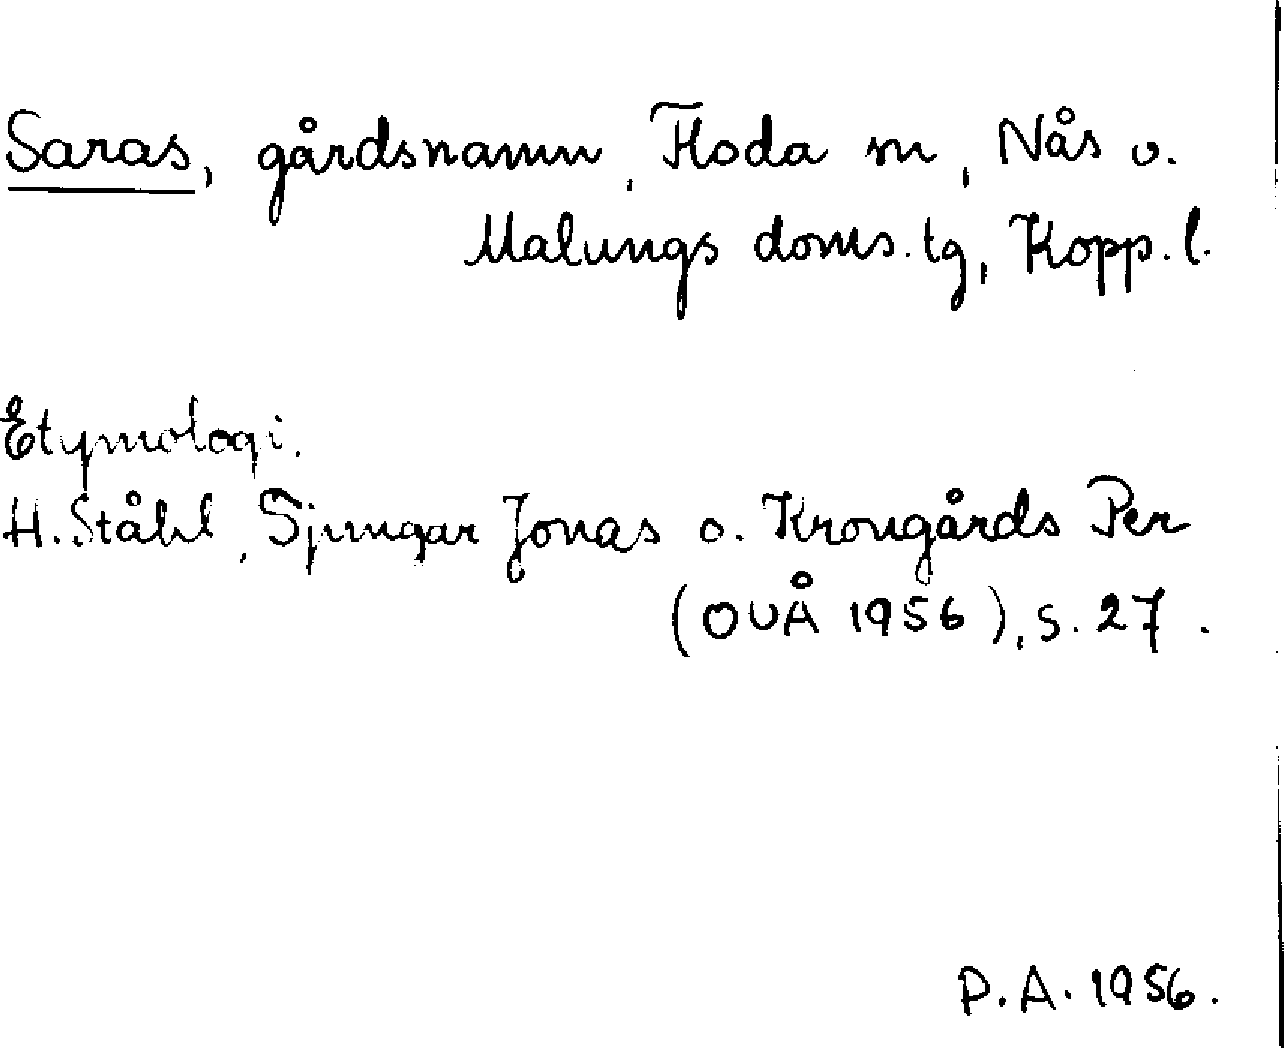 Saras, gårdsnamn, Floda sn, Nås o.
Malungs doms. tg, Kopp. l.
Etymologi.
H. Ståhl, Sjungar Jonas o. Krongårds Per
(OUÅ 1956), s. 27.
P.A. 1956.